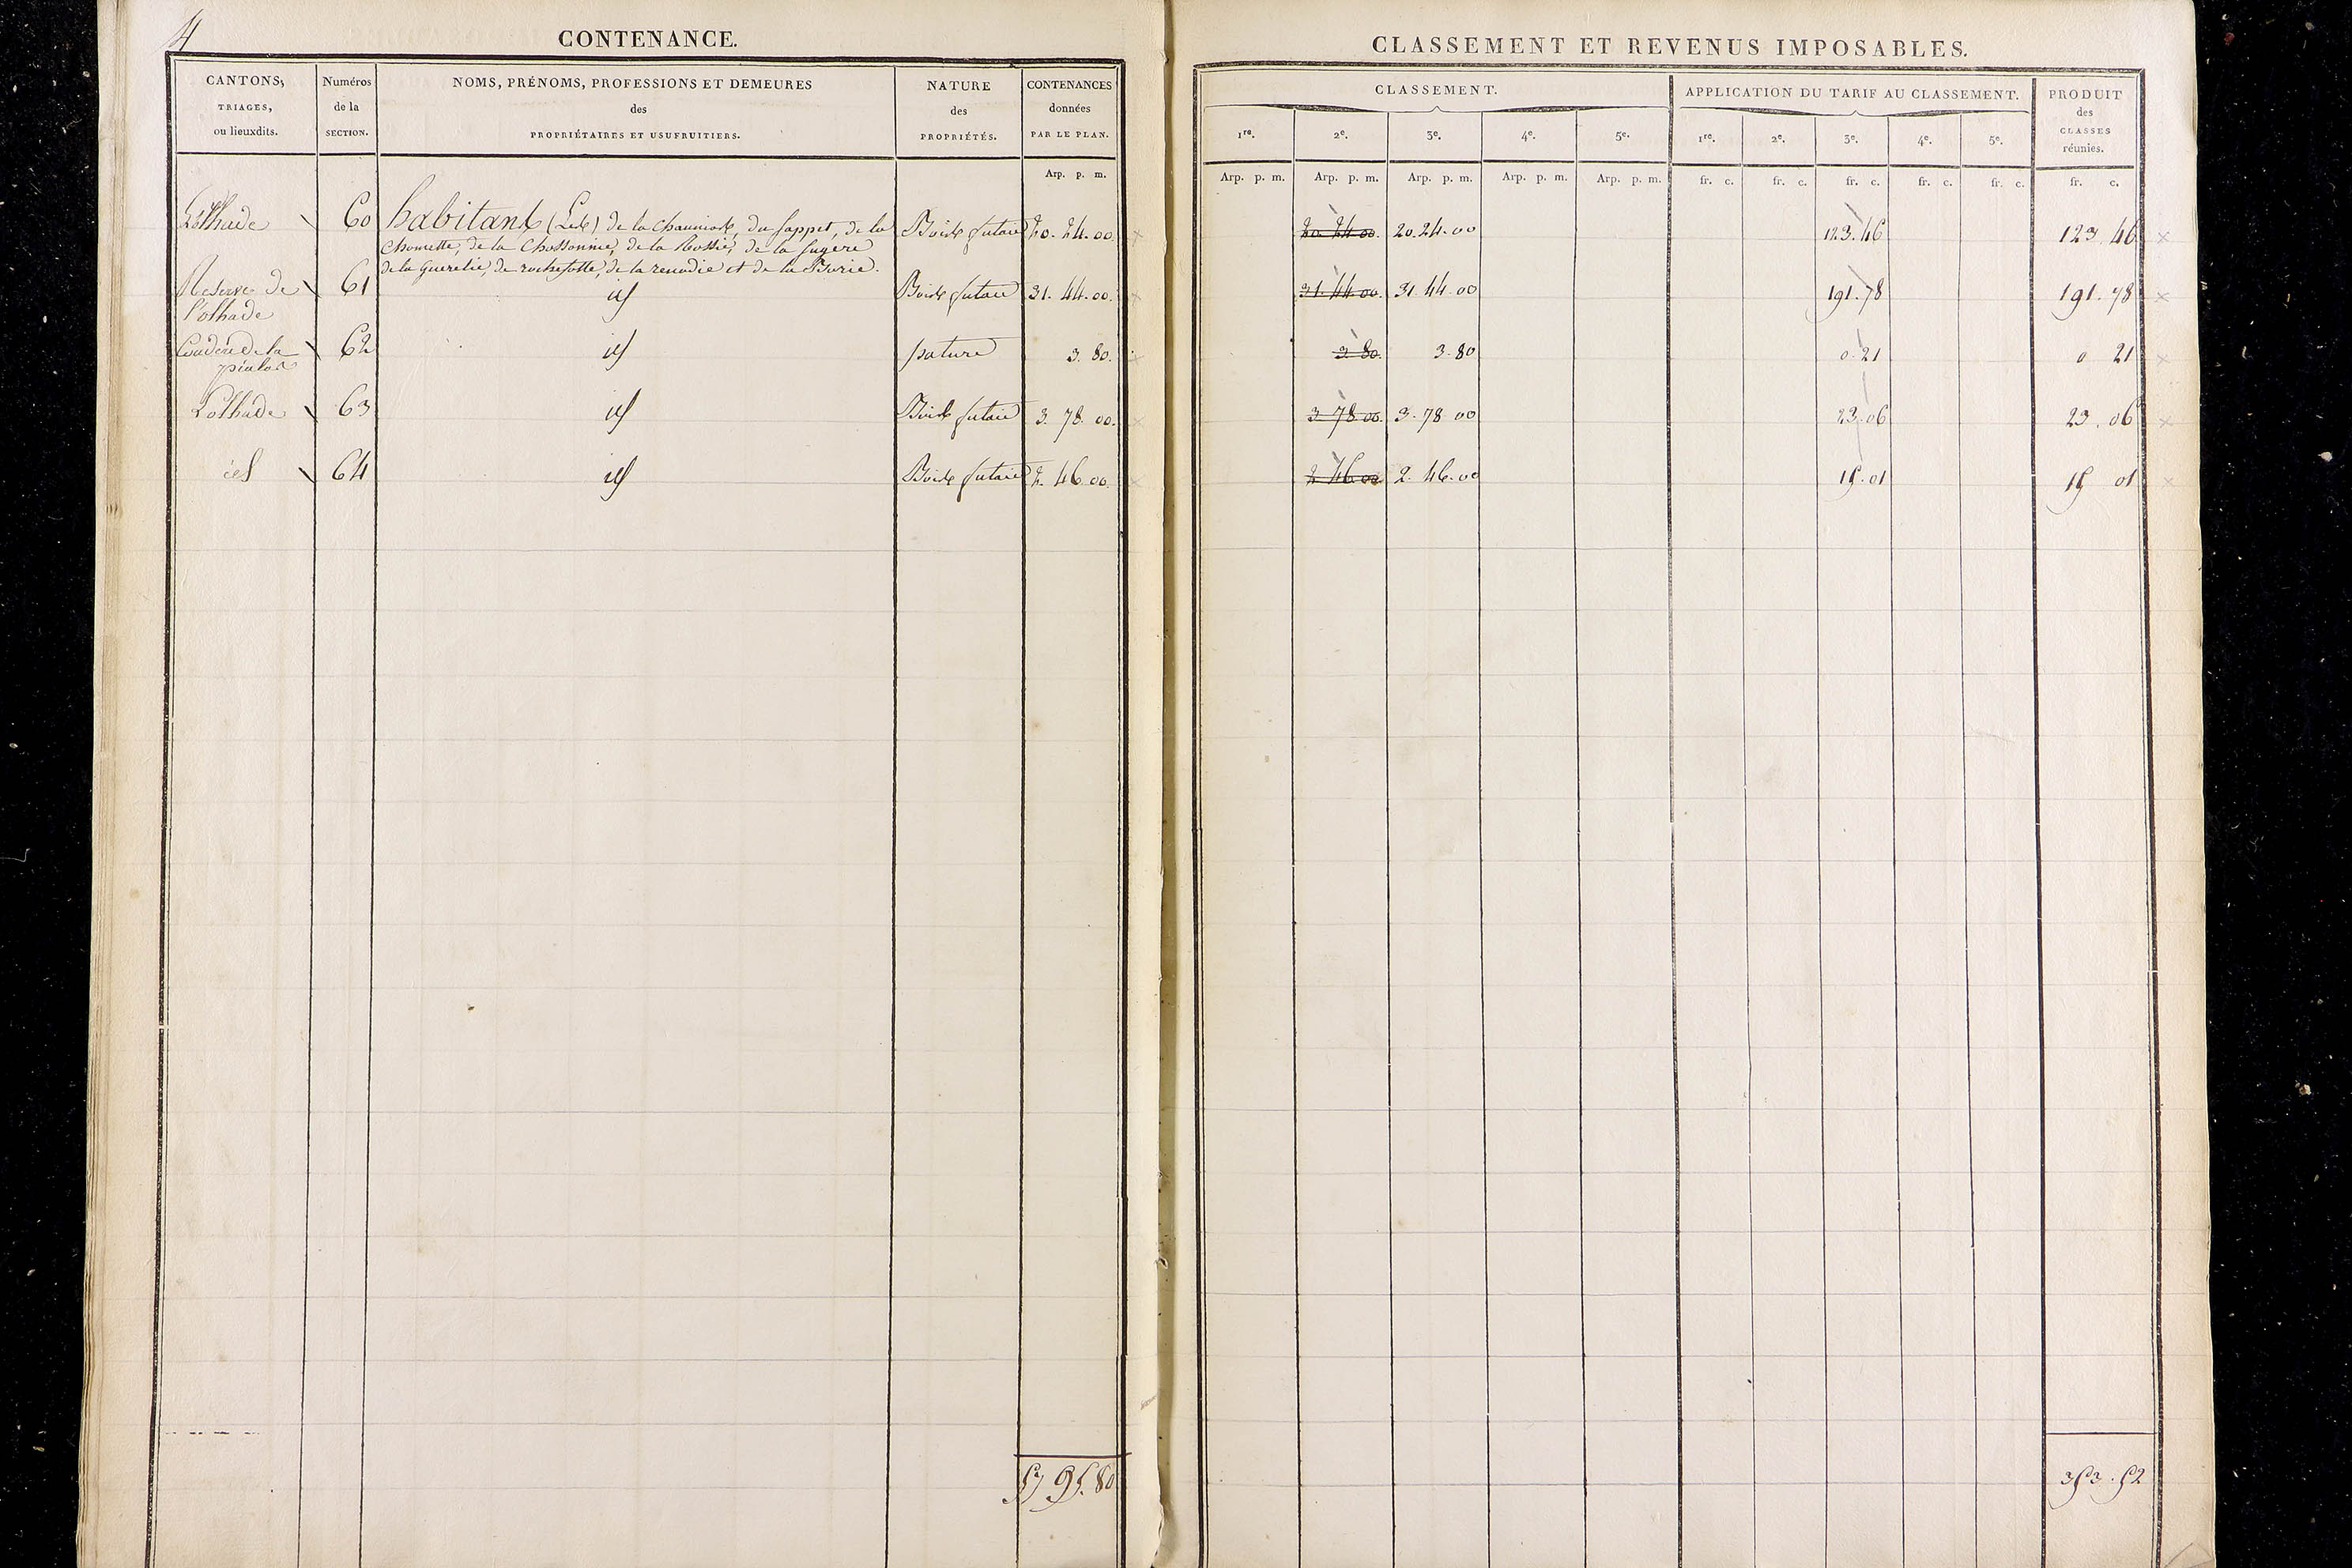 4
CONTENANCE.
CANTONS, TRIAGES, ou lieuxdits.
Numéros de la SECTION.
NOMS, PRÉNOMS, PROFESSIONS ET DEMEURES des PROPRIÉTAIRES ET USUFRUITIERS.
NATURE des PROPRIÉTÉS.
CONTENANCES données PAR LE PLAN.
Arp. p. m.
Lolhade 60 habitants (Les) de la Chauniat, du sappet, de la Bois futaie 20. 24. 00.
Chomette, de la Chassonnie, de la Rossie, de la fugere
de la Guerelie, de rochesotte, de la renodie et de la Borie.
Reserve de 61 id Bois futaie 31. 44. 00.
l'olhade
de la 62 id pature 3. 80.
Lolhade 63 id Bois futaie 3. 78. 00.
id 64 id Bois futaie 2. 46. 00.
57 95. 80
CLASSEMENT ET REVENUS IMPOSABLES.
CLASSEMENT.
APPLICATION DU TARIF AU CLASSEMENT.
PRODUIT des CLASSES réunies.
1re. 2e. 3e. 4e. 5e. 1re. 2e. 3e. 4e. 5e.
Arp. p. m. Arp. p. m. Arp. p. m. Arp. p. m. Arp. p. m. fr. c. fr. c. fr. c. fr. c. fr. c. fr. c.
20. 24. 00. 20. 24. 00 123. 46 123. 46
31. 44. 00. 31. 44. 00 191. 78 191. 78
3. 80. 3. 80 0. 21 0 21
3. 78. 00. 3. 78. 00 23. 06 23. 06
2 46. 00. 2. 46. 00 15. 01 15 01
353. 52